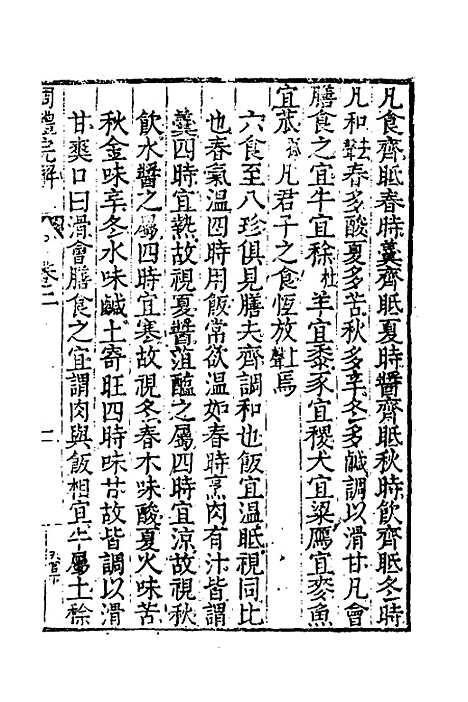 凡食齊眡春時羹齊眡夏時醬齊眡秋時飲齊眡冬時
凡和去聲春多酸夏多苦秋多辛冬多鹹調以滑甘凡會
膳食之宜牛宜稌音杜羊宜黍豕宜稷犬宜粱鴈宜麥魚
宜苽音孤凡君子之食恆放上聲焉
六食至八珍俱見膳夫齊調和也飯宜溫眡視同比
也春氣溫四時用飯常欲溫如春時烹肉有汁皆謂
羹四時宜熱故視夏醬菹醢之屬四時宜涼故視秋
飲水醬之屬四時宜寒故視冬春木味酸夏火味苦
秋金味辛冬水味鹹土寄旺四時味甘故皆調以滑
甘爽口曰滑會膳食之宜謂肉與飯相宜牛屬土稌
周禮完解 卷二 二